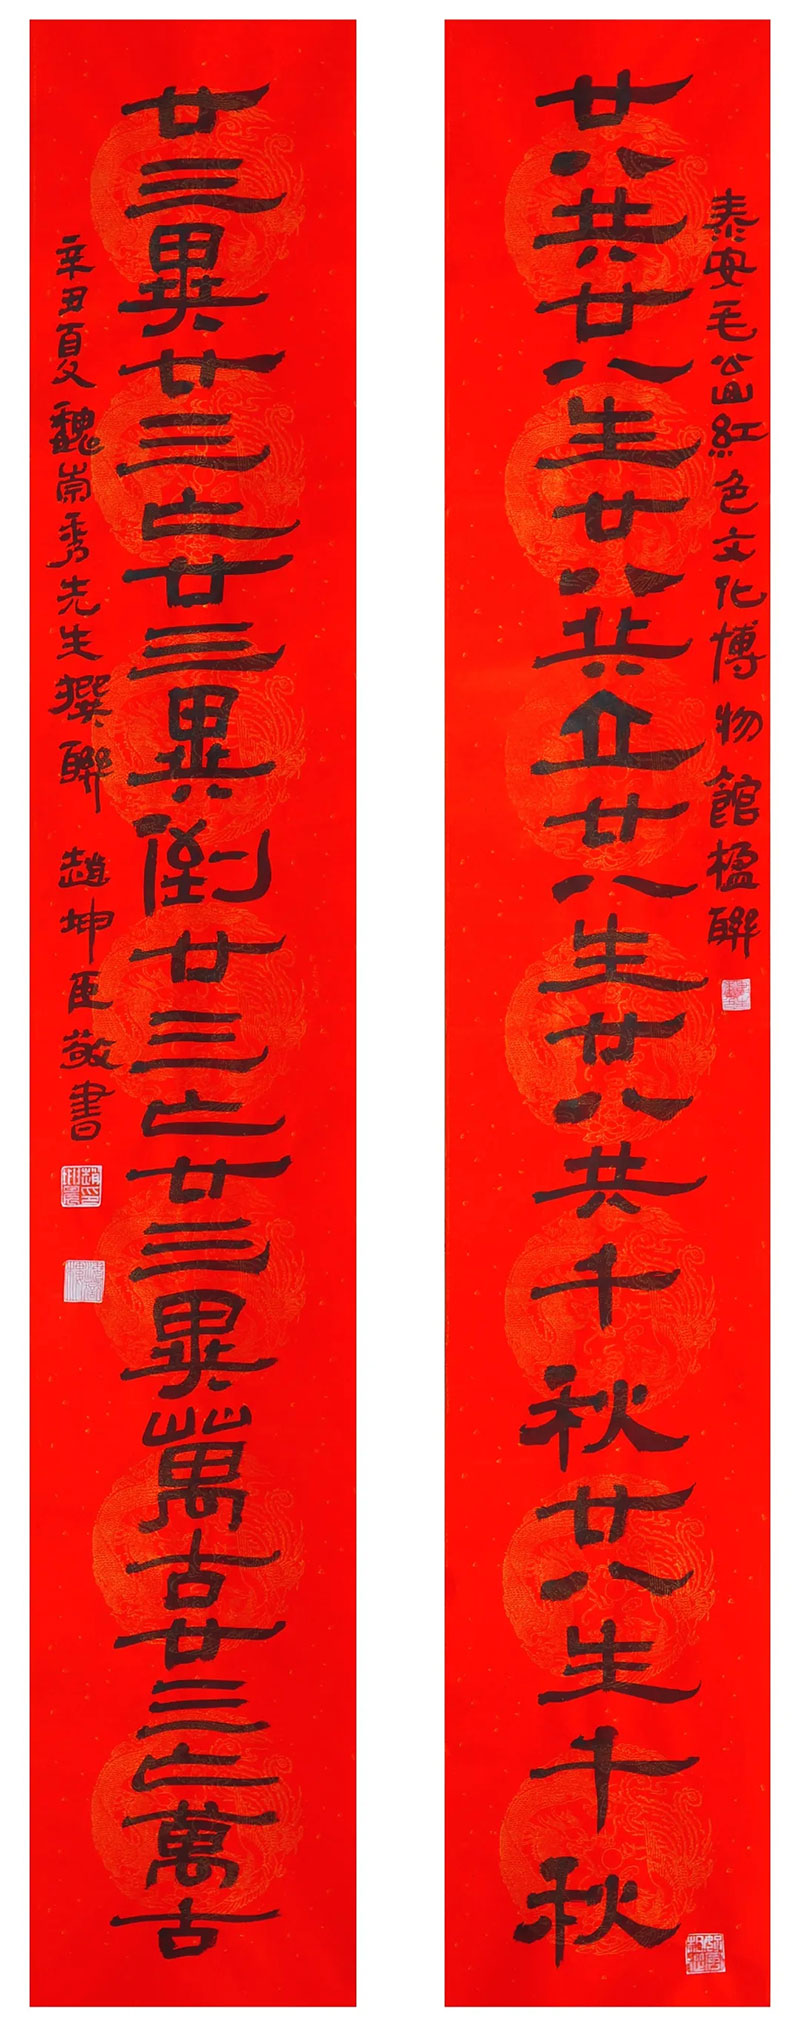 泰安毛公山紅色文化博物館楹聯
廿八共廿八生廿八共立廿八生廿八共千秋廿八生千秋
廿三異廿三亡廿三異倒廿三亡廿三異萬古廿三亡萬古
辛丑夏魏崇秀先生撰聯 趙坤臣敬書